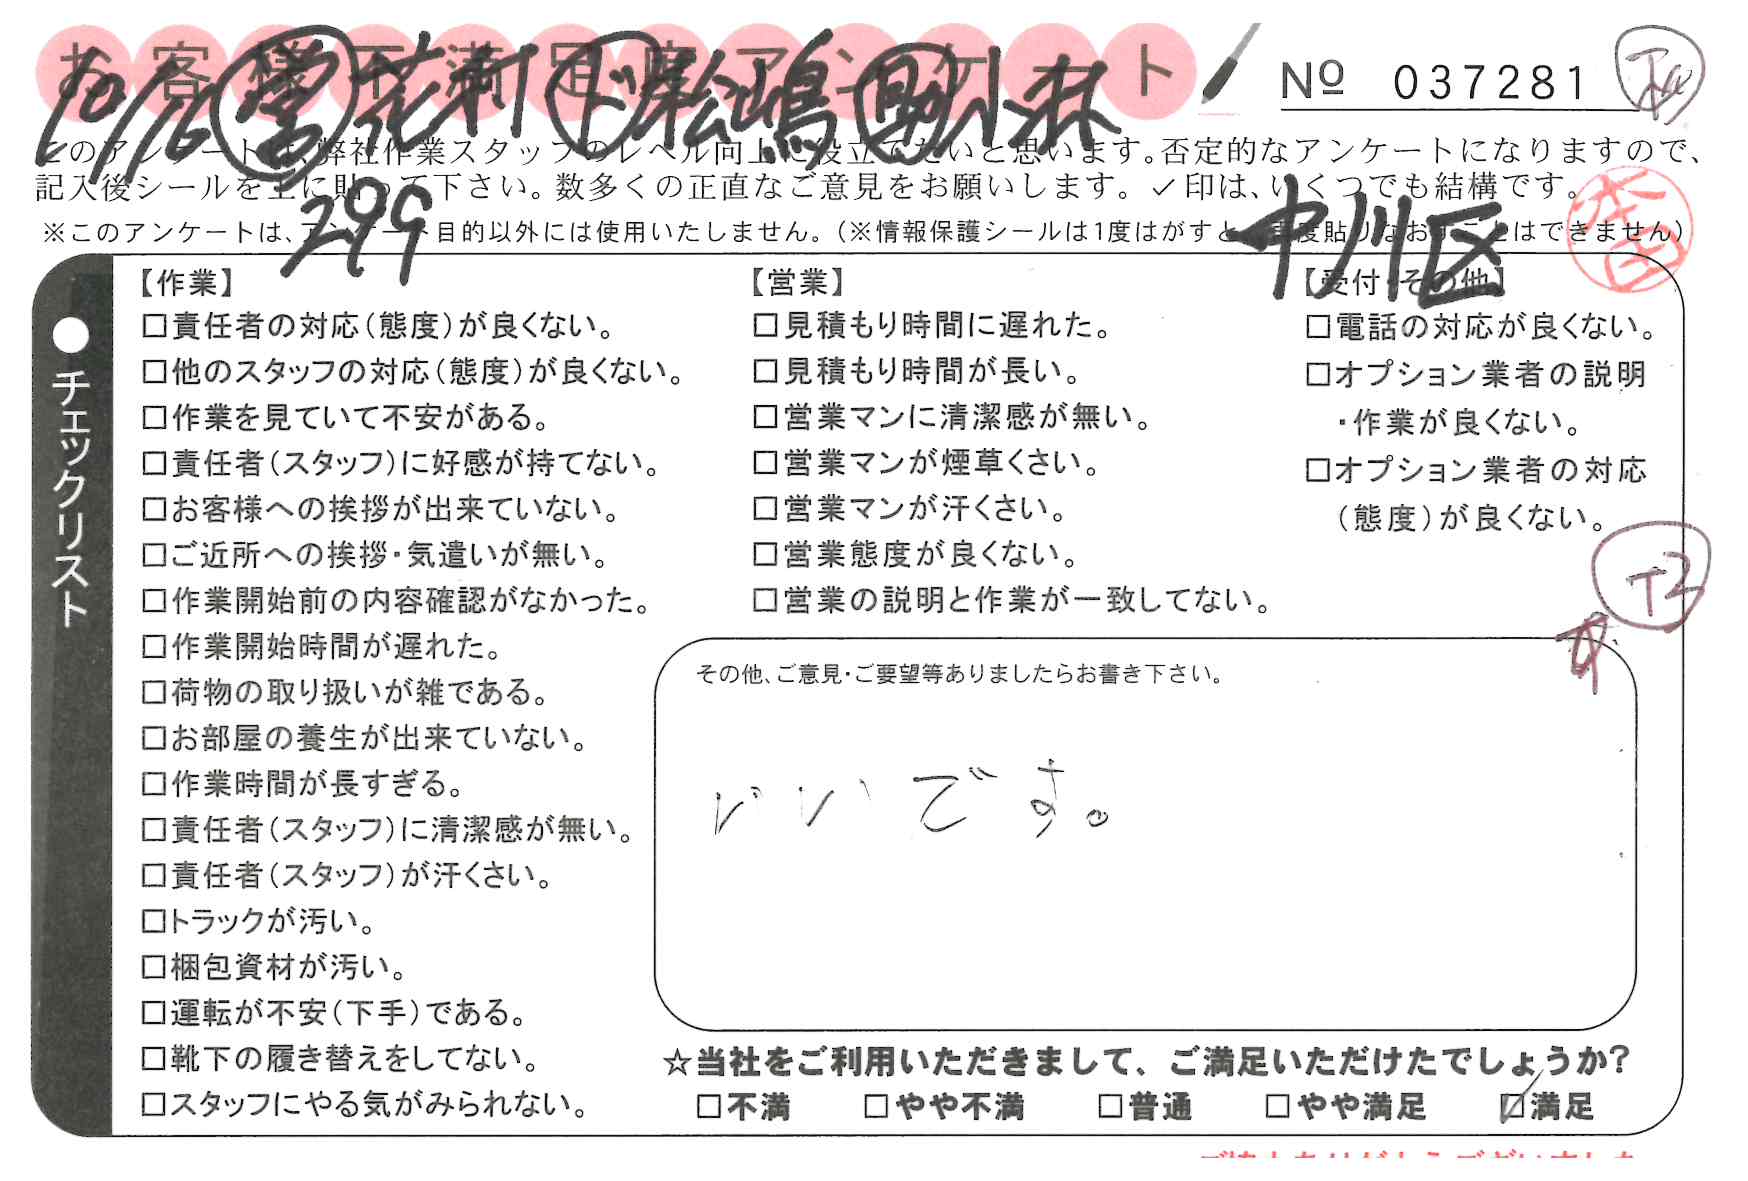 お客様不満足度アンケート
№ 037281
10/12 営 花村 ド 松嶋 助 小林
このアンケートは、弊社作業スタッフのレベル向上に役立てたいと思います。否定的なアンケートになりますので、
記入後シールを上に貼って下さい。数多くの正直なご意見をお願いします。✓印は、いくつでも結構です。
299
中川区
本田
※このアンケートは、アンケート目的以外には使用いたしません。(※情報保護シールは1度はがすと、再度貼りなおすことはできません)
●チェックリスト
【作業】
□責任者の対応(態度)が良くない。
□他のスタッフの対応(態度)が良くない。
□作業を見ていて不安がある。
□責任者(スタッフ)に好感が持てない。
□お客様への挨拶が出来ていない。
□ご近所への挨拶・気遣いが無い。
□作業開始前の内容確認がなかった。
□作業開始時間が遅れた。
□荷物の取り扱いが雑である。
□お部屋の養生が出来ていない。
□作業時間が長すぎる。
□責任者(スタッフ)に清潔感が無い。
□責任者(スタッフ)が汗くさい。
□トラックが汚い。
□梱包資材が汚い。
□運転が不安(下手)である。
□靴下の履き替えをしてない。
□スタッフにやる気がみられない。
【営業】
□見積もり時間に遅れた。
□見積もり時間が長い。
□営業マンに清潔感が無い。
□営業マンが煙草くさい。
□営業マンが汗くさい。
□営業態度が良くない。
□営業の説明と作業が一致してない。
【受付・その他】
□電話の対応が良くない。
□オプション業者の説明
・作業が良くない。
□オプション業者の対応
(態度)が良くない。
その他、ご意見・ご要望等ありましたらお書き下さい。
いいです。
☆当社をご利用いただきまして、ご満足いただけたでしょうか?
□不満 □やや不満 □普通 □やや満足 ☑満足